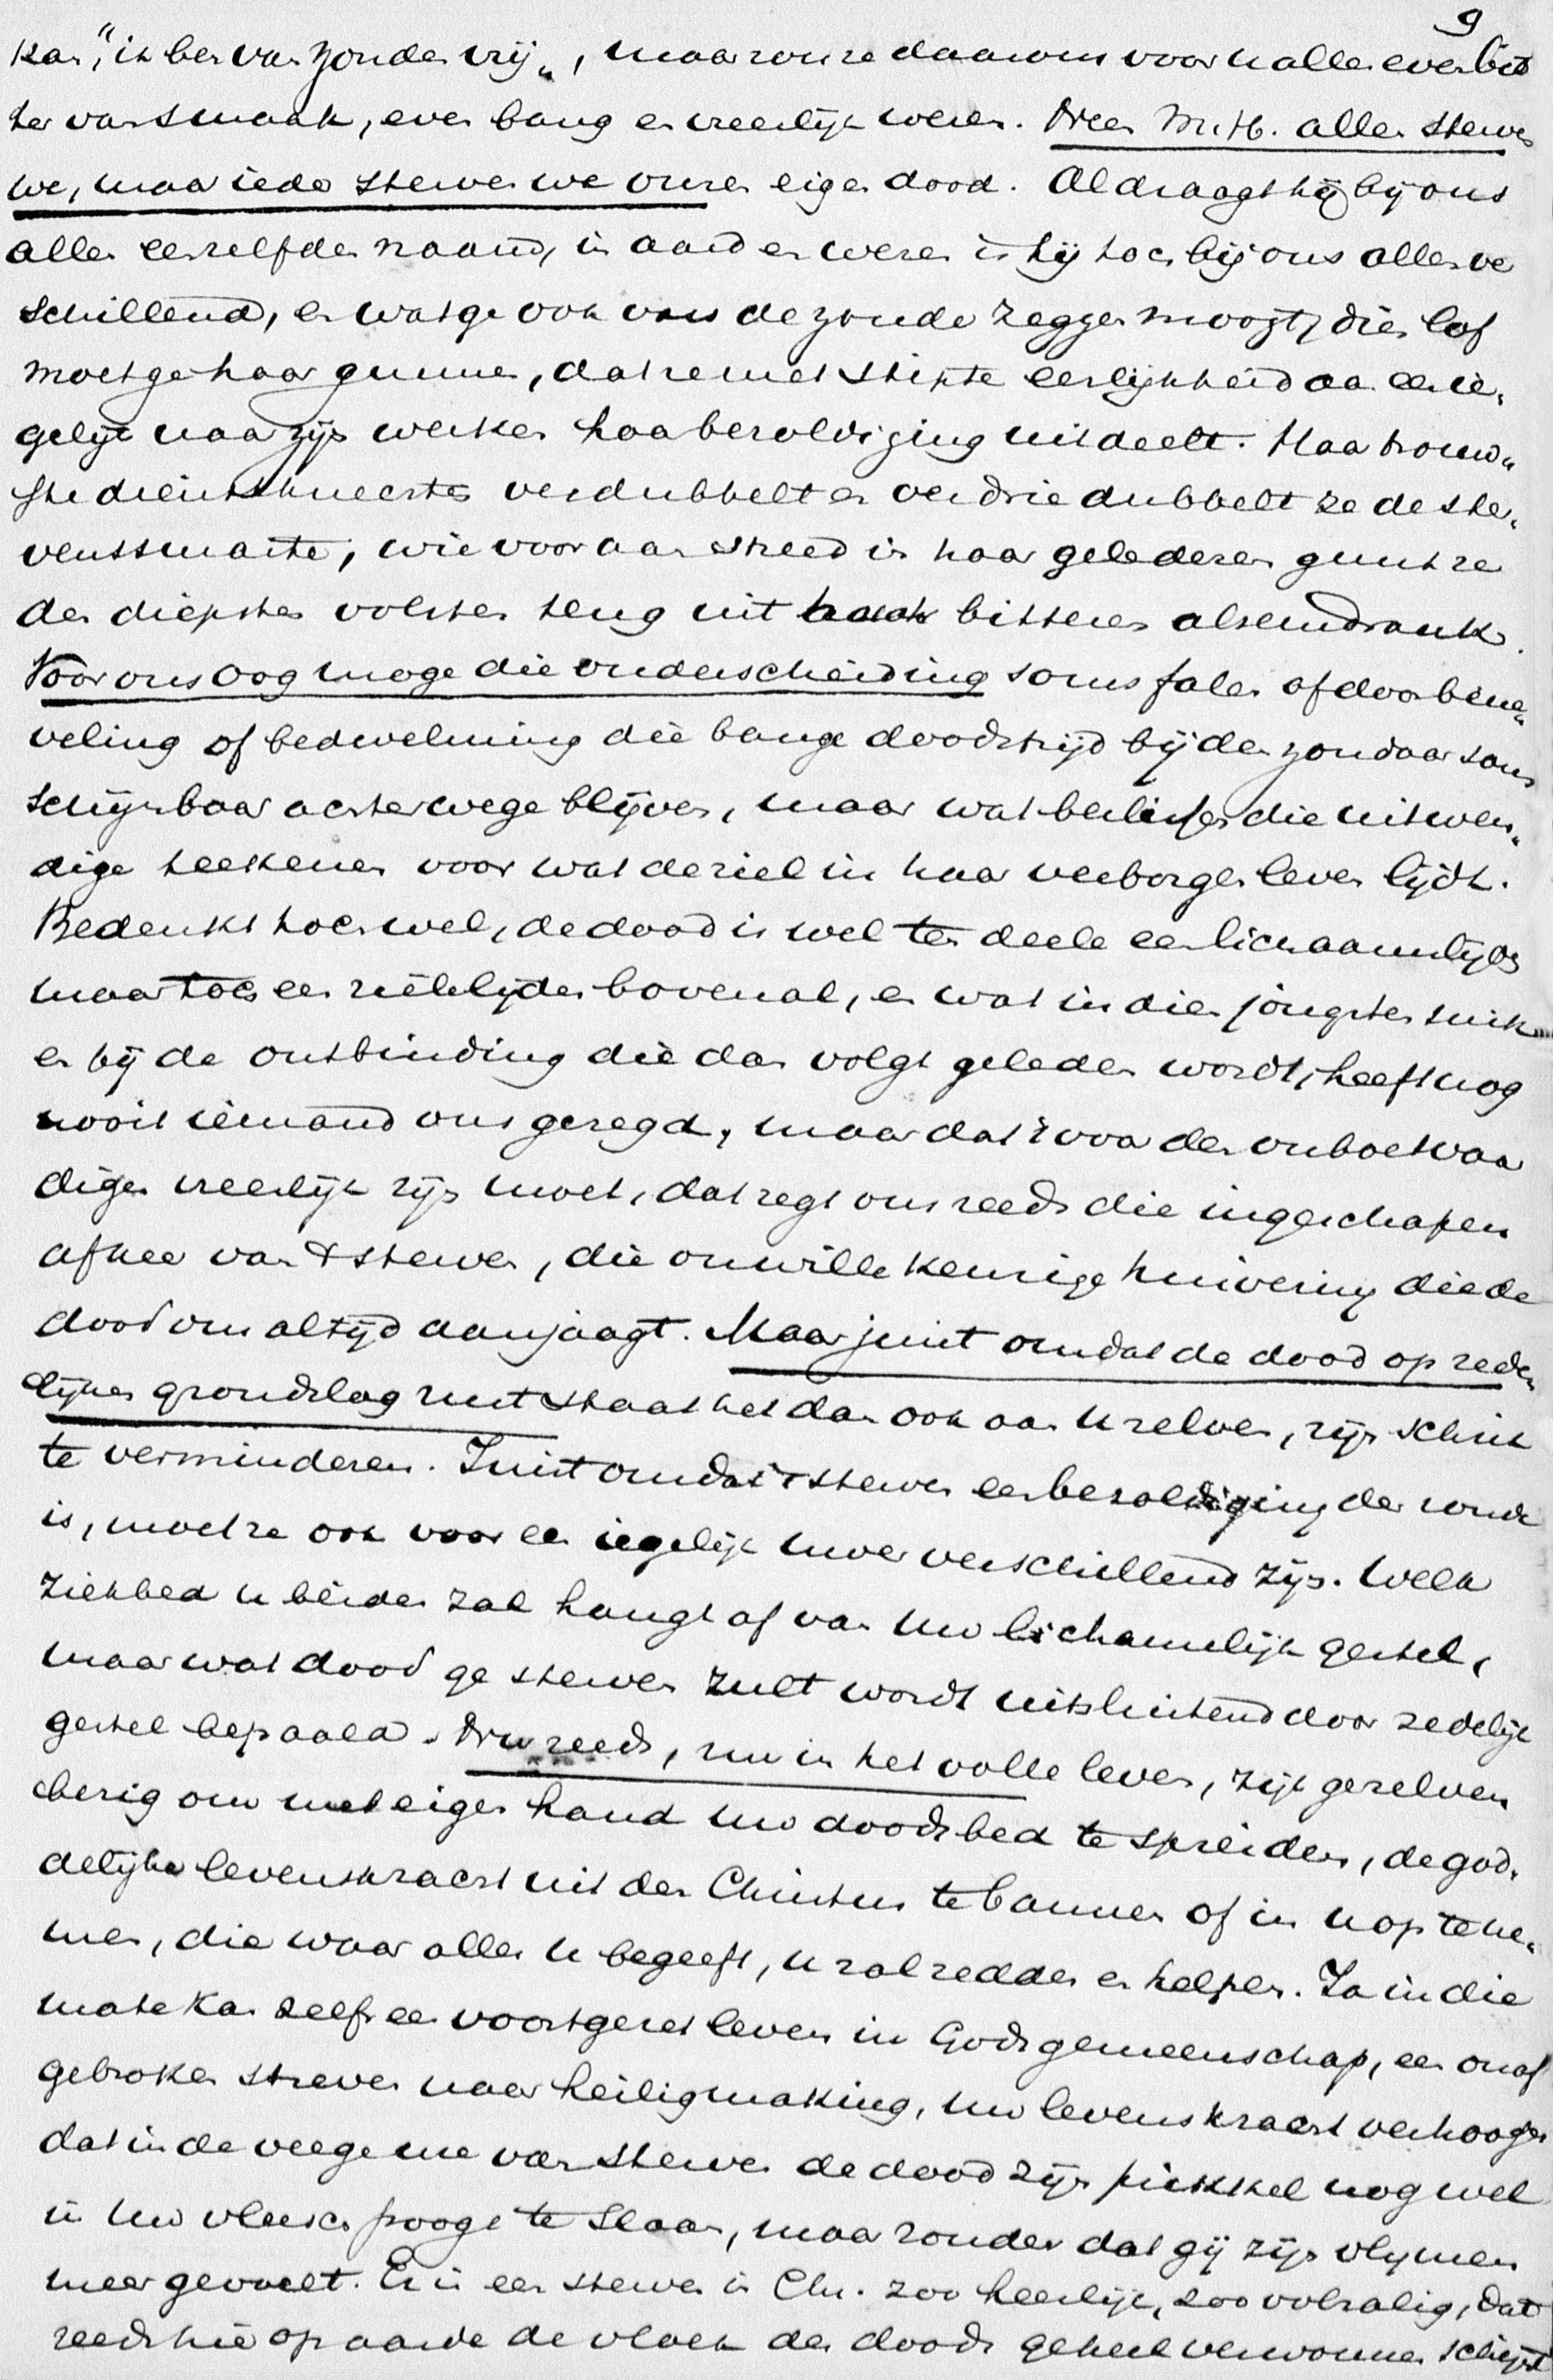 9
kan, "ik ben van zonde vrij", maar zou ze daarom voor u allen even bit
ter van smaak, even bang en vreeslijk wezen. Neen M.H. allen sterven
we, maar ieder sterven we onzen eigen dood. Al draagt hij bij ons
allen eenzelfden naam, in aard en wezen is hij toch bij ons allen ver
schillend, en wat ge ook van de zonde zeggen moogt, dien lof
moet ge haar gunnen, dat ze met stipte eerlijkheid aan een ie„
gelijk naar zijn werken haar bezoldiging uitdeelt. Haar trouw„
ste dienstknechten verdubbelt en verdriedubbelt ze de ster„
venssmarte, wie vooraan streed in haar gelederen gunt ze
den diepsten volsten teug uit haar bitteren alsemdrank.
Voor ons oog moge die onderscheiding soms falen of door bene„
veling of bedwelming die bange doodstrijd bij den zondaar soms
schijnbaar achterwege blijven, maar wat beslissen die uitwen„
dige teekenen voor wat de ziel in haar verborgen leven lijdt.
Bedenkt toch wel, de dood is wel ten deele een lichaamslijden
maar toch een zielelijden bovenal, en wat in dien jongsten snik
en bij de ontbinding die dan volgt geleden wordt, heeft nog
nooit iemand ons gezegd, maar dat 't voor den onboetvaar
digen vreeslijk zijn moet, dat zegt ons reeds die ingeschapen
afkeer van 't sterven, die onwillekeurige huivering die de
dood ons altijd aanjaagt. Maar juist omdat de dood op zede„
lijken grondslag rust staat het dan ook aan u zelven, zijn schrik
te verminderen. Juist omdat 't sterven een bezoldiging der zonde
is, moet ze ook voor een iegelijk uwer verschillend zijn. Welk
ziekbed u beiden zal hangt af van uw lichamelijk gestel,
maar wat dood ge sterven zult wordt uitsluitend door zedelijk
gestel bepaald. Nu reeds, nu in het volle leven, zijt ge zelven
bezig om met eigen hand uw doodsbed te spreiden, de god„
delijke levenskracht uit den Christus te bannen of in u op te ne„
men, die waar alles u begeeft, u zal redden en helpen. Ja in die
mate kan zelfs een voortgezet leven in Gods gemeenschap, een onaf
gebroken streven naar heiligmaking, uw levenskracht verhoogen
dat in de veege ure van sterven de dood zijn prikkel nog wel
in uw vleesch poogt te slaan, maar zonder dat gij zijn vlijmen
meer gevoelt. Er is een sterven in Chr. zoo heerlijk, zoo volzalig, dat
reeds hier op aarde de vloek des doods geheel verwonnen schijnt